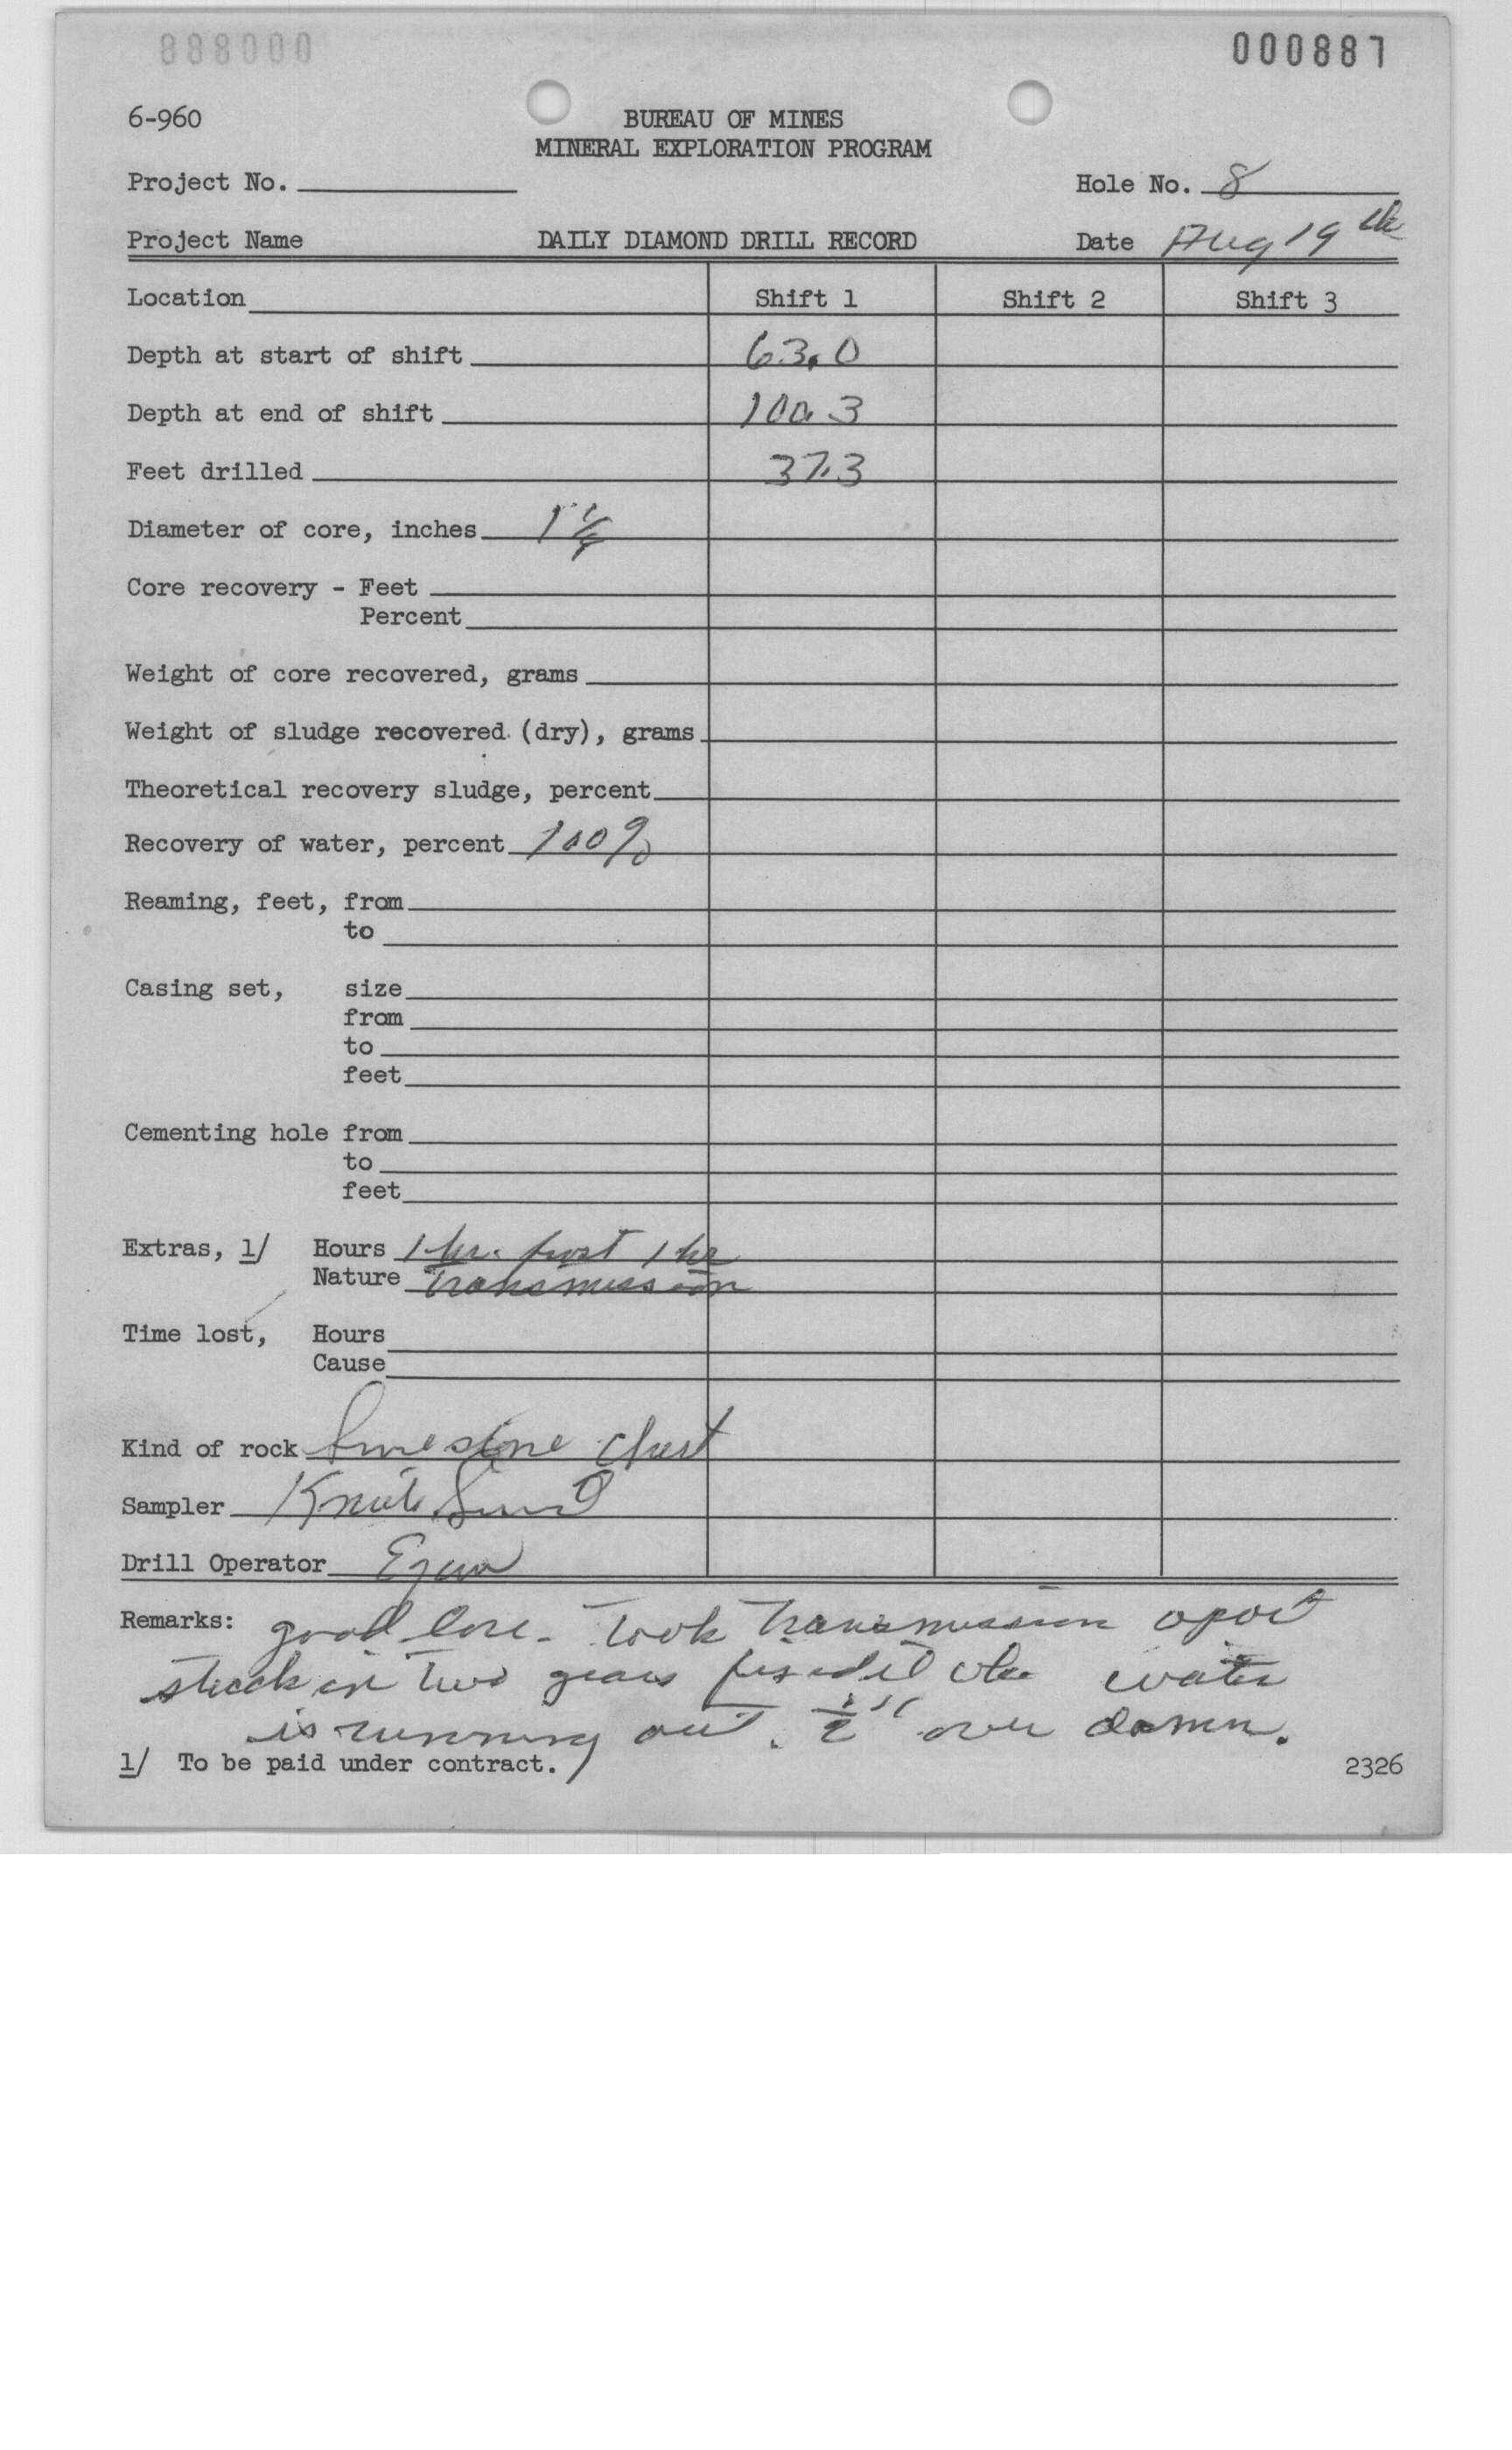 888000
000887
6-960
BUREAU OF MINES
MINERAL EXPLORATION PROGRAM
Project No.
Hole No. 8
Project Name DAILY DIAMOND DRILL RECORD Date Aug 19th
Location Shift 1 Shift 2 Shift 3
Depth at start of shift 63.0
Depth at end of shift 100.3
Feet drilled 37.3
Diameter of core, inches 1 1/4
Core recovery - Feet
Percent
Weight of core recovered, grams
Weight of sludge recovered (dry), grams
Theoretical recovery sludge, percent
Recovery of water, percent 100%
Reaming, feet, from
to
Casing set, size
from
to
feet
Cementing hole from
to
feet
Extras, 1/ Hours 1 hr. 1 hr
Nature Transmission
Time lost, Hours
Cause
Kind of rock Limestone chert
Sampler
Drill Operator
Remarks: good core - Took Transmission apart
stuck in two gears the water
is running out. 1/2" over
1/ To be paid under contract.
2326